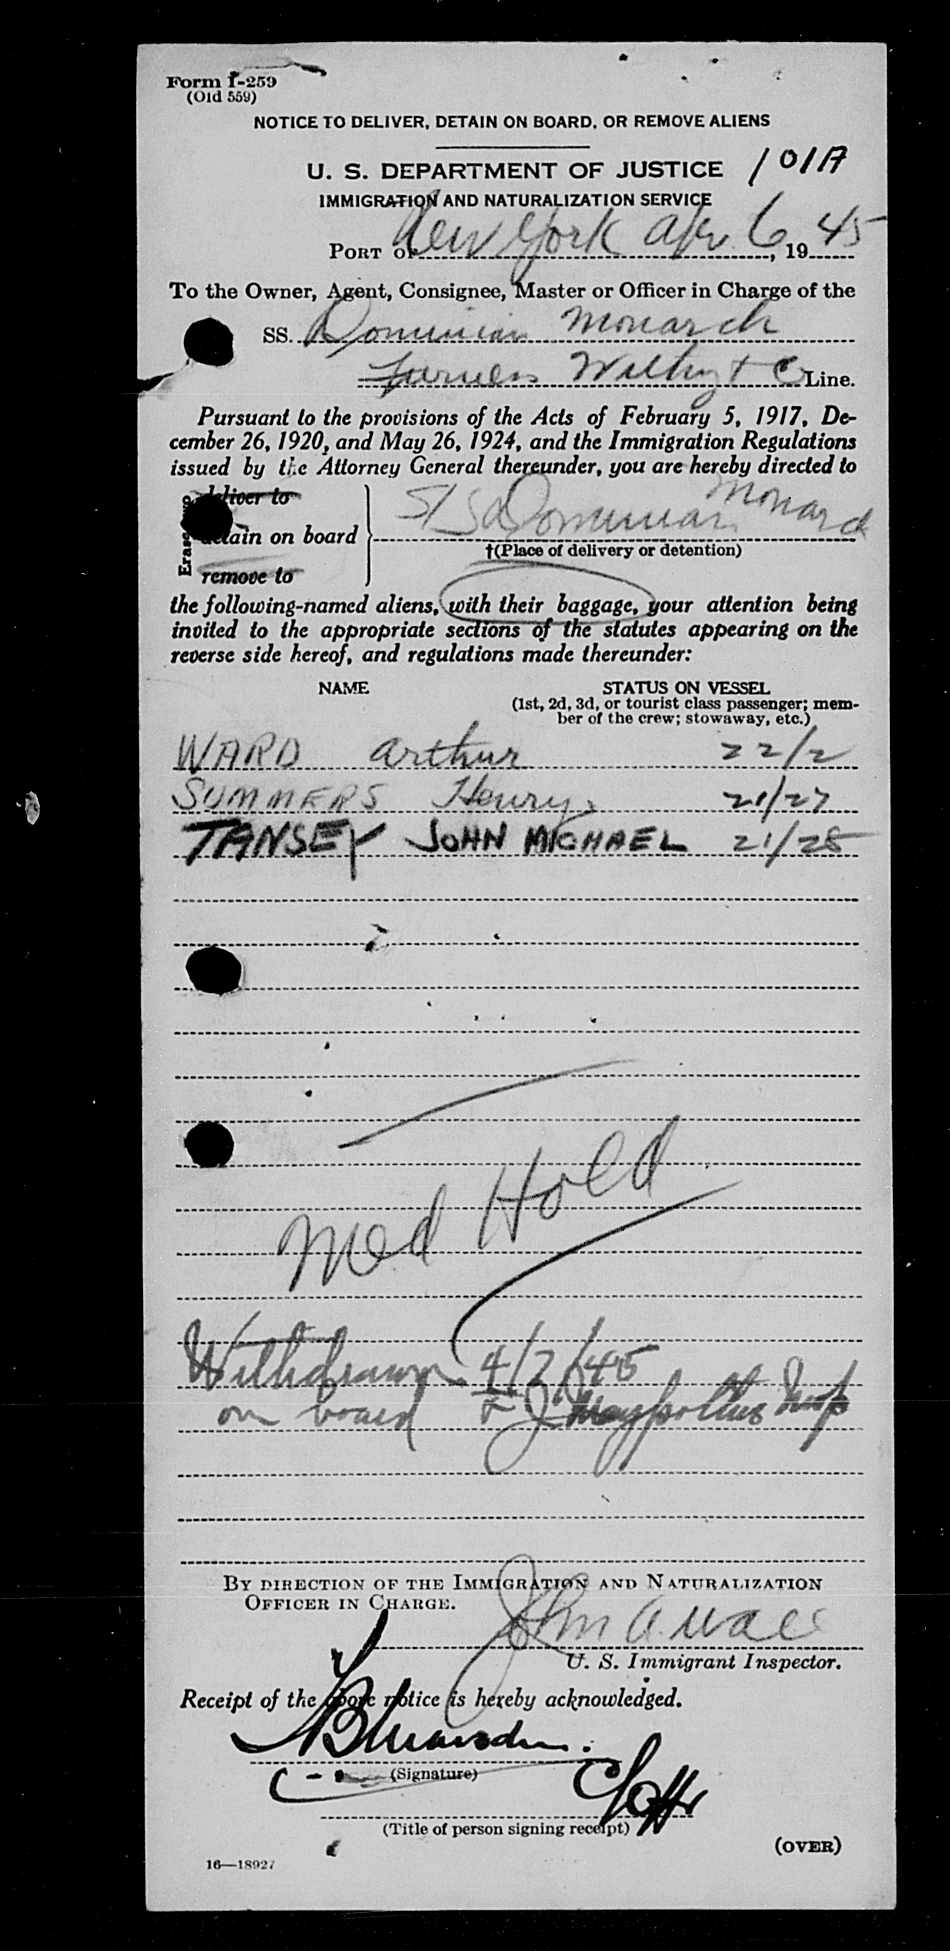 Form I-259
(Old 559)
NOTICE TO DELIVER, DETAIN ON BOARD, OR REMOVE ALIENS
U. S. DEPARTMENT OF JUSTICE 101A
IMMIGRATION AND NATURALIZATION SERVICE
PORT OF New York Apr 6, 1945
To the Owner, Agent, Consignee, Master or Officer in Charge of the
SS. Dominion Monarch
Furness Withy & Co Line.
Pursuant to the provisions of the Acts of February 5, 1917, De-
cember 26, 1920, and May 26, 1924, and the Immigration Regulations
issued by the Attorney General thereunder, you are hereby directed to
deliver to
detain on board S/S Dominion Monarch
†(Place of delivery or detention)
remove to
the following-named aliens, with their baggage, your attention being
invited to the appropriate sections of the statutes appearing on the
reverse side hereof, and regulations made thereunder:
NAME STATUS ON VESSEL
(1st, 2d, 3d, or tourist class passenger; mem-
ber of the crew; stowaway, etc.)
WARD Arthur 22/2
SUMMERS Henry. 21/27
TANSEY JOHN MICHAEL 21/28
Med Hold
Withdrawn 4/7/45
on board Insp
BY DIRECTION OF THE IMMIGRATION AND NATURALIZATION
OFFICER IN CHARGE.
John A.
U. S. Immigrant Inspector.
Receipt of the above notice is hereby acknowledged.
(Signature)
(Title of person signing receipt)
(OVER)
16—18927